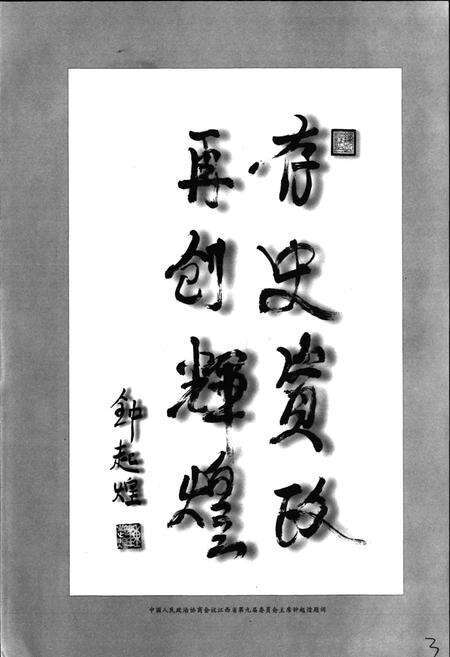 存史资政
再创輝煌
鈡起煌
中国人民政治协商会议江西省第九届委员会主席钟起煌题词
3